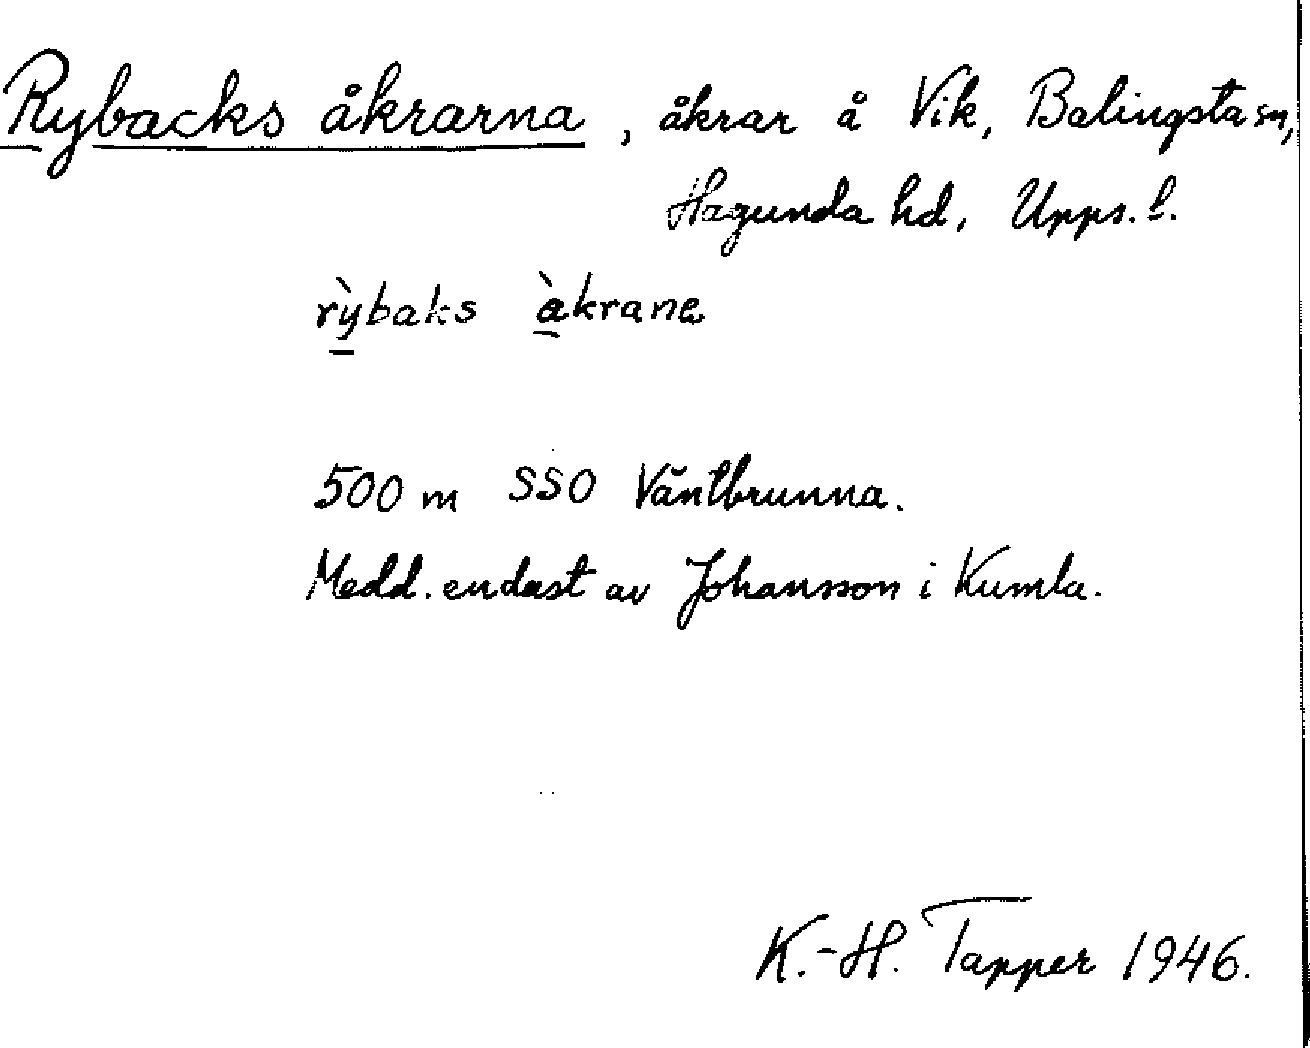 Rybacks åkrarna, åkrar å Vik, Balingsta sn,
Hagunda hd, Upps. l.
rỳbaks àkrane
500 m SSO Väntbrunna.
Medd. endast av Johansson i Kumla.
K.-H. Tapper 1946.